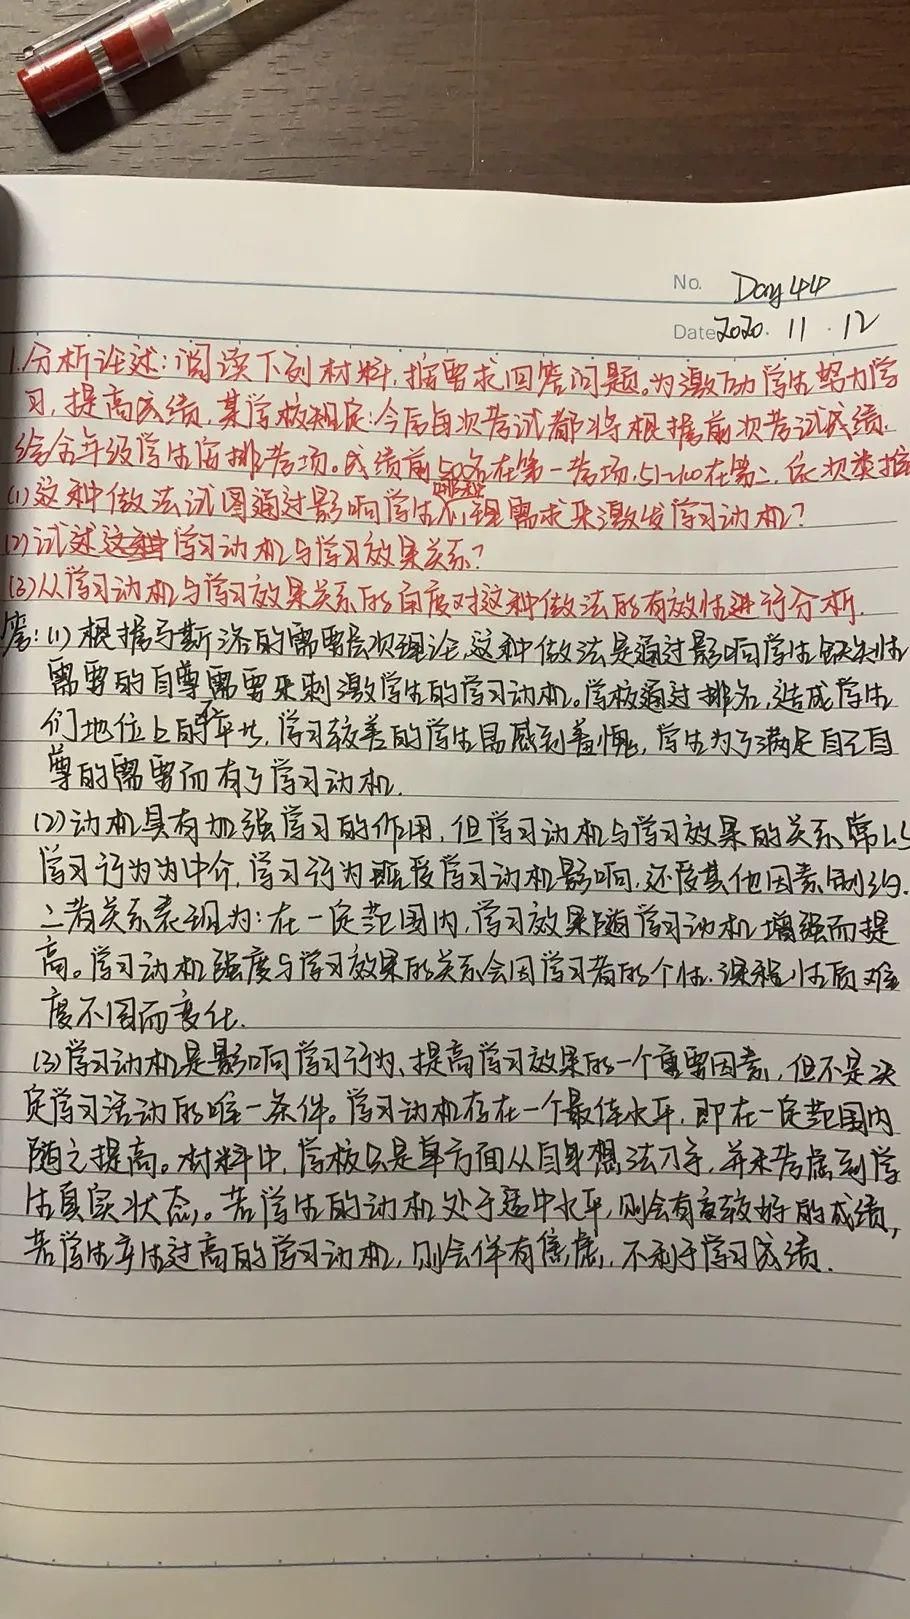 No. Day 44
Date 2020. 11. 12
1.分析论述:阅读下列材料,按要求回答问题。为激励学生努力学
习,提高成绩,某学校规定:今后每次考试都将根据前次考试成绩.
给全年级学生安排考场。成绩前50名在第一考场,51~100在第二,依次类推
(1)这种做法试图通过影响学生哪种心理需求来激发学习动机?
(2)试述学习动机与学习效果关系?
(3)从学习动机与学习效果关系的角度对这种做法的有效性进行分析.
答:(1)根据马斯洛的需要层次理论,这种做法是通过影响学生缺失性
需要的自尊需要来刺激学生的学习动机。学校通过排名,造成学生
们地位上的不平等,学习较差的学生易感到羞愧,学生为了满足自己自
尊的需要而有了学习动机.
(2)动机具有加强学习的作用,但学习动机与学习效果的关系常以
学习行为为中介,学习行为既受学习动机影响,还受其他因素制约.
二者关系表现为:在一定范围内,学习效果随学习动机增强而提
高。学习动机强度与学习效果的关系会因学习者的个性.课程性质难
度不同而变化.
(3)学习动机是影响学习行为、提高学习效果的一个重要因素,但不是决
定学习活动的唯一条件。学习动机存在一个最佳水平,即在一定范围内
随之提高。材料中,学校只是单方面从自身想法入手,并未考虑到学
生真实状态。若学生的动机处于适中水平,则会有较好的成绩,
若学生产生过高的学习动机,则会伴有焦虑,不利于学习成绩.